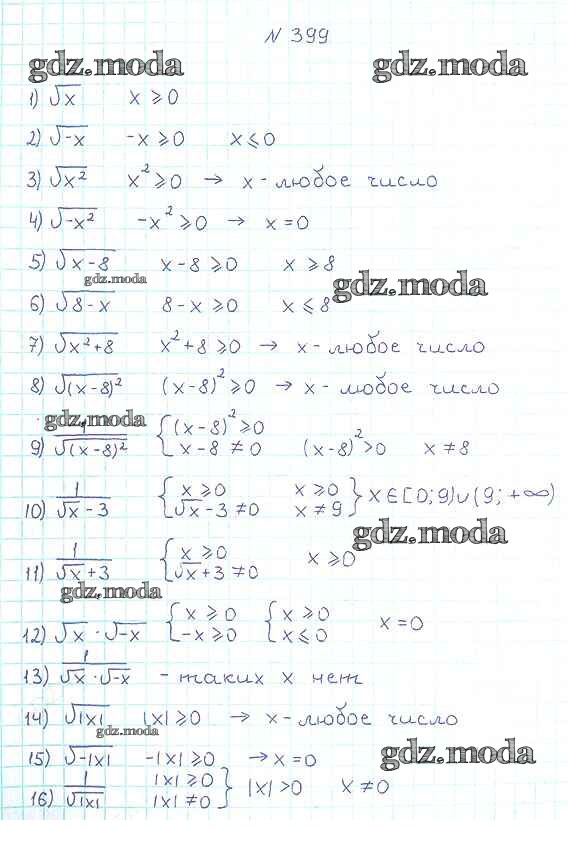 N 399
gdz.moda gdz.moda
1) √x   x ⩾ 0
2) √-x   -x ⩾ 0   x ⩽ 0
3) √x²   x² ⩾ 0 → x - любое число
4) √-x²   -x² ⩾ 0 → x = 0
5) √x - 8   x - 8 ⩾ 0   x ⩾ 8
gdz.moda gdz.moda
6) √8 - x   8 - x ⩾ 0   x ⩽ 8
7) √x² + 8   x² + 8 ⩾ 0 → x - любое число
8) √(x - 8)²   (x - 8)² ⩾ 0 → x - любое число
gdz.moda
9) 1/√(x - 8)²   { (x - 8)² ⩾ 0   x - 8 ≠ 0   (x - 8)² > 0   x ≠ 8
10) 1/√x - 3   { x ⩾ 0   √x - 3 ≠ 0   x ⩾ 0   x ≠ 9 } x ∈ [0; 9) ∪ (9; +∞)
gdz.moda
11) 1/√x + 3   { x ⩾ 0   √x + 3 ≠ 0   x ⩾ 0
gdz.moda
12) √x · √-x   { x ⩾ 0   -x ⩾ 0   { x ⩾ 0   x ⩽ 0   x = 0
13) 1/√x · √-x   - таких x нет
14) √|x|   |x| ⩾ 0 → x - любое число
gdz.moda
15) √-|x|   -|x| ⩾ 0 → x = 0
gdz.moda
16) 1/√|x|   |x| ⩾ 0   |x| ≠ 0 } |x| > 0   x ≠ 0